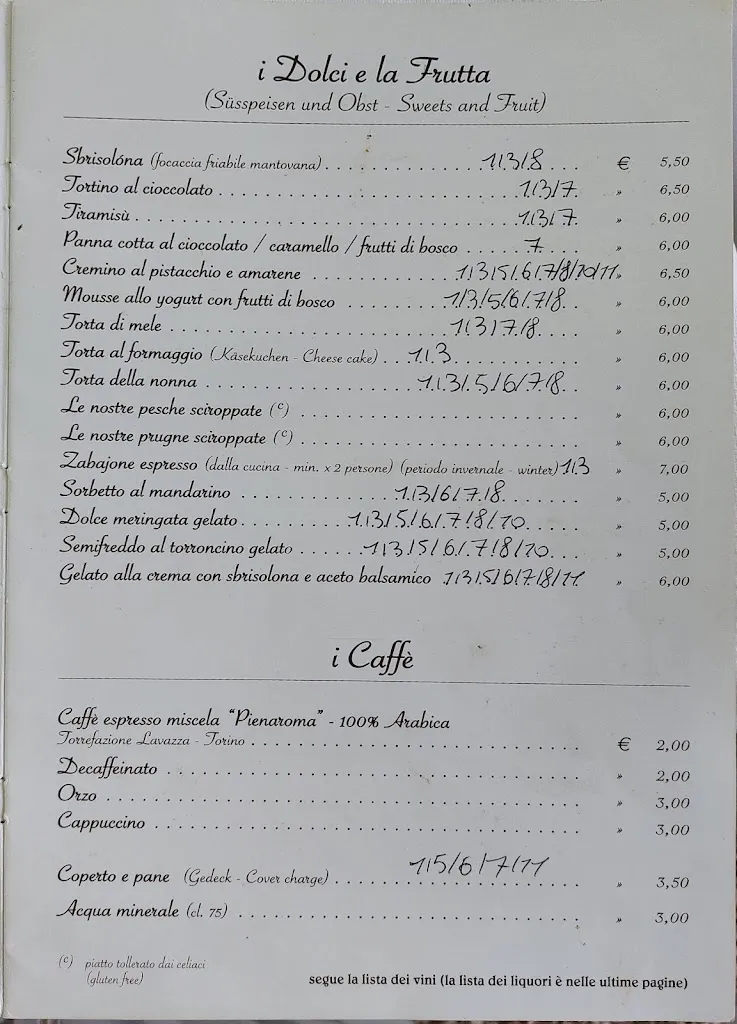 i Dolci e la Frutta
(Süsspeisen und Obst - Sweets and Fruit)
Sbrisolóna (focaccia friabile mantovana) . . . 1/3/8 . . . € 5,50
Tortino al cioccolato . . . 1/3/7 » 6,50
Tiramisù . . . 1/3/7 » 6,00
Panna cotta al cioccolato / caramello / frutti di bosco . . . 7 . . . » 6,00
Cremino al pistacchio e amarene 1/3/5/6/7/8/10/11 » 6,50
Mousse allo yogurt con frutti di bosco . . . 1/3/5/6/7/8 » 6,00
Torta di mele . . . 1/3/7/8 . . . » 6,00
Torta al formaggio (Käsekuchen - Cheese cake) . . . 1/3 . . . » 6,00
Torta della nonna . . . 1/3/5/6/7/8 » 6,00
Le nostre pesche sciroppate (c) . . . » 6,00
Le nostre prugne sciroppate (c) . . . » 6,00
Zabajone espresso (dalla cucina - min. x 2 persone) (periodo invernale - winter) 1/3 » 7,00
Sorbetto al mandarino . . . 1/3/6/7/8 . . . » 5,00
Dolce meringata gelato . . . 1/3/5/6/7/8/10 . . . » 5,00
Semifreddo al torroncino gelato . . . 1/3/5/6/7/8/10 . . . » 5,00
Gelato alla crema con sbrisolona e aceto balsamico 1/3/5/6/7/8/11 » 6,00
i Caffè
Caffè espresso miscela "Pienaroma" - 100% Arabica
Torrefazione Lavazza - Torino . . . € 2,00
Decaffeinato . . . » 2,00
Orzo . . . » 3,00
Cappuccino . . . » 3,00
1/5/6/7/11
Coperto e pane (Gedeck - Cover charge) . . . » 3,50
Acqua minerale (cl. 75) . . . » 3,00
(c) piatto tollerato dai celiaci
(gluten free)
segue la lista dei vini (la lista dei liquori è nelle ultime pagine)